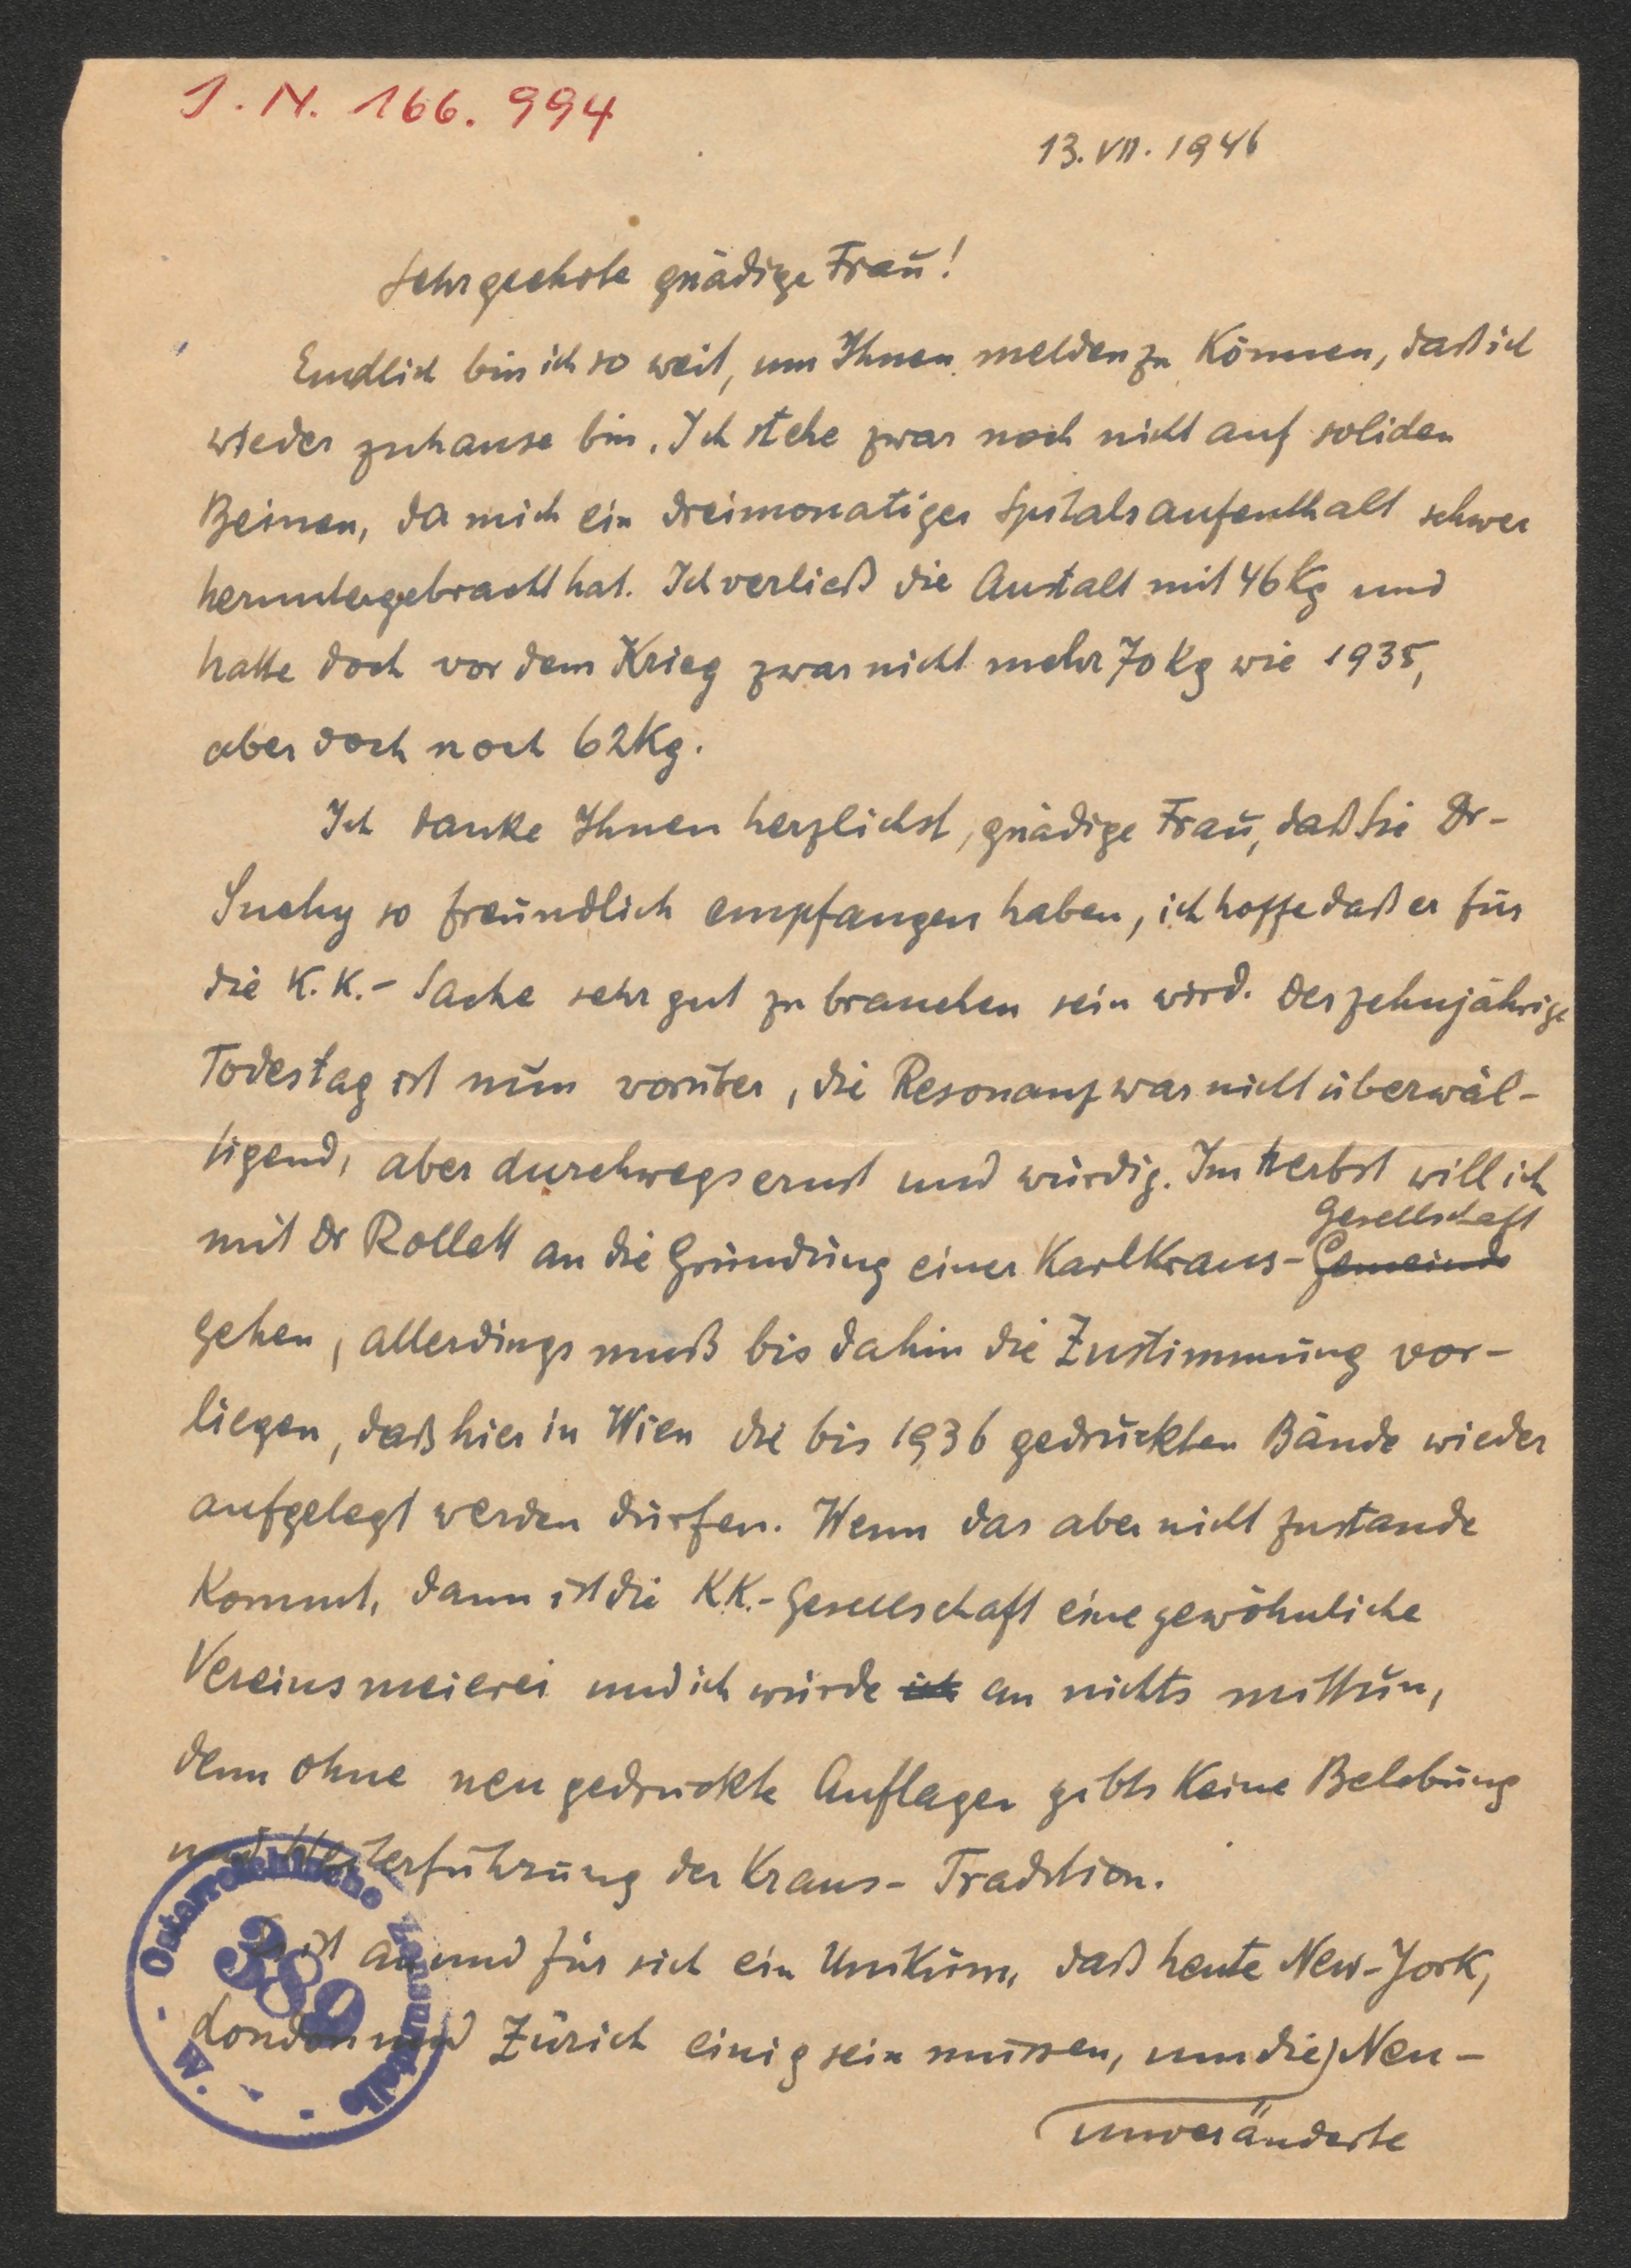 J. N. 166.994
13. VII. 1946
Sehr geehrte gnädige Frau!
Endlich bin ich so weit, um Ihnen melden zu können, daß ich
wieder zuhause bin. Ich stehe zwar noch nicht auf soliden
Beinen, da mich ein dreimonatiger Spitalsaufenthalt schwer
heruntergebracht hat. Ich verließ die Anstalt mit 46 kg und
hatte doch vor dem Krieg zwar nicht mehr 70 kg wie 1935,
aber doch noch 62 kg.
Ich danke Ihnen herzlichst, gnädige Frau, daß Sie Dr-
Suchy so freundlich empfangen haben, ich hoffe daß er für
die K.K.- Sache sehr gut zu brauchen sein wird. Der zehnjährige
Todestag ist nun vorüber, die Resonanz war nicht überwäl-
tigend, aber durchwegs ernst und würdig. Im Herbst will ich
Gesellschaft
mit Dr Rollett an die Gründung einer Karl Kraus - Gemeinde
gehen, allerdings muß bis dahin die Zustimmung vor-
liegen, daß hier in Wien die bis 1936 gedruckten Bände wieder
aufgelegt werden dürfen. Wenn das aber nicht zustande
kommt, dann ist die KK.- Gesellschaft eine gewöhnliche
Vereinsmeierei und ich würde ich an nichts mittun,
denn ohne neu gedruckte Auflagen gibts keine Belebung
und Weiterführung der Kraus - Tradition.
Es ist an und für sich ein Unikum, daß heute New-York,
London und Zürich einig sein müssen, um die Neu -
unveränderte
Österreichische Zensurstelle
389
W.